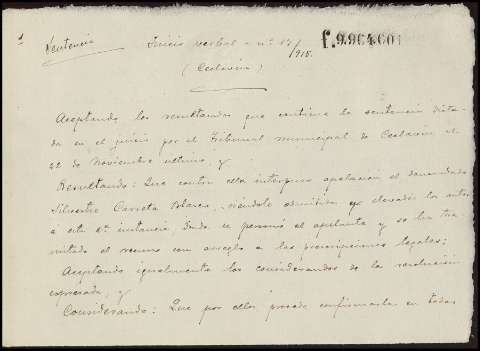 1
Sentencia
Juicio verbal - nº 17/915.
f.9.964.601
(Ceclavín)
Aceptando los resultandos que contiene la sentencia dicta-
da en el juicio por el Tribunal municipal de Ceclavín el
22 de Noviembre último, y
Resultando: Que contra ella interpuso apelación el demandado
Silvestre Carreta Blanco, siéndole admitida y elevados los autos
á esta 2ª instancia, donde se personó el apelante y se ha tra-
mitado el recurso con arreglo a las prescripciones legales;
Aceptando igualmente los considerandos de la resolución
expresada, y
Considerando: Que por ellos procede confirmarla en todas